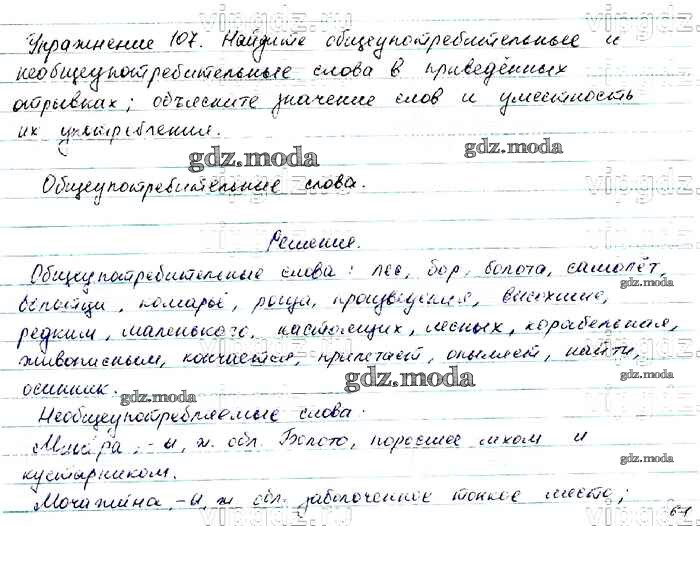 Упражнение 107. Найдите общеупотребительные и
необщеупотребительные слова в приведённых
отрывках; объясните значение слов и уместность
их употребления.
gdz.moda
gdz.moda
Общеупотребительные слова.
vipgdz.ru
Решение.
Общеупотребительные слова: лес, бор, болота, самолёт,
комарьё, роща, произведения, высохшие,
редким, маленького, настоящих, лесных, корабельная,
живописным, кончается, прилетает, опыляет, найти,
осинник.
gdz.moda
gdz.moda
gdz.moda
gdz.moda
Необщеупотребляемые слова:
Мшара, -ы, ж. обл. Болото, поросшее мхом и
кустарником.
gdz.moda
Мочажина, -ы, ж обл. заболоченное топкое место;
vipgdz.ru
61